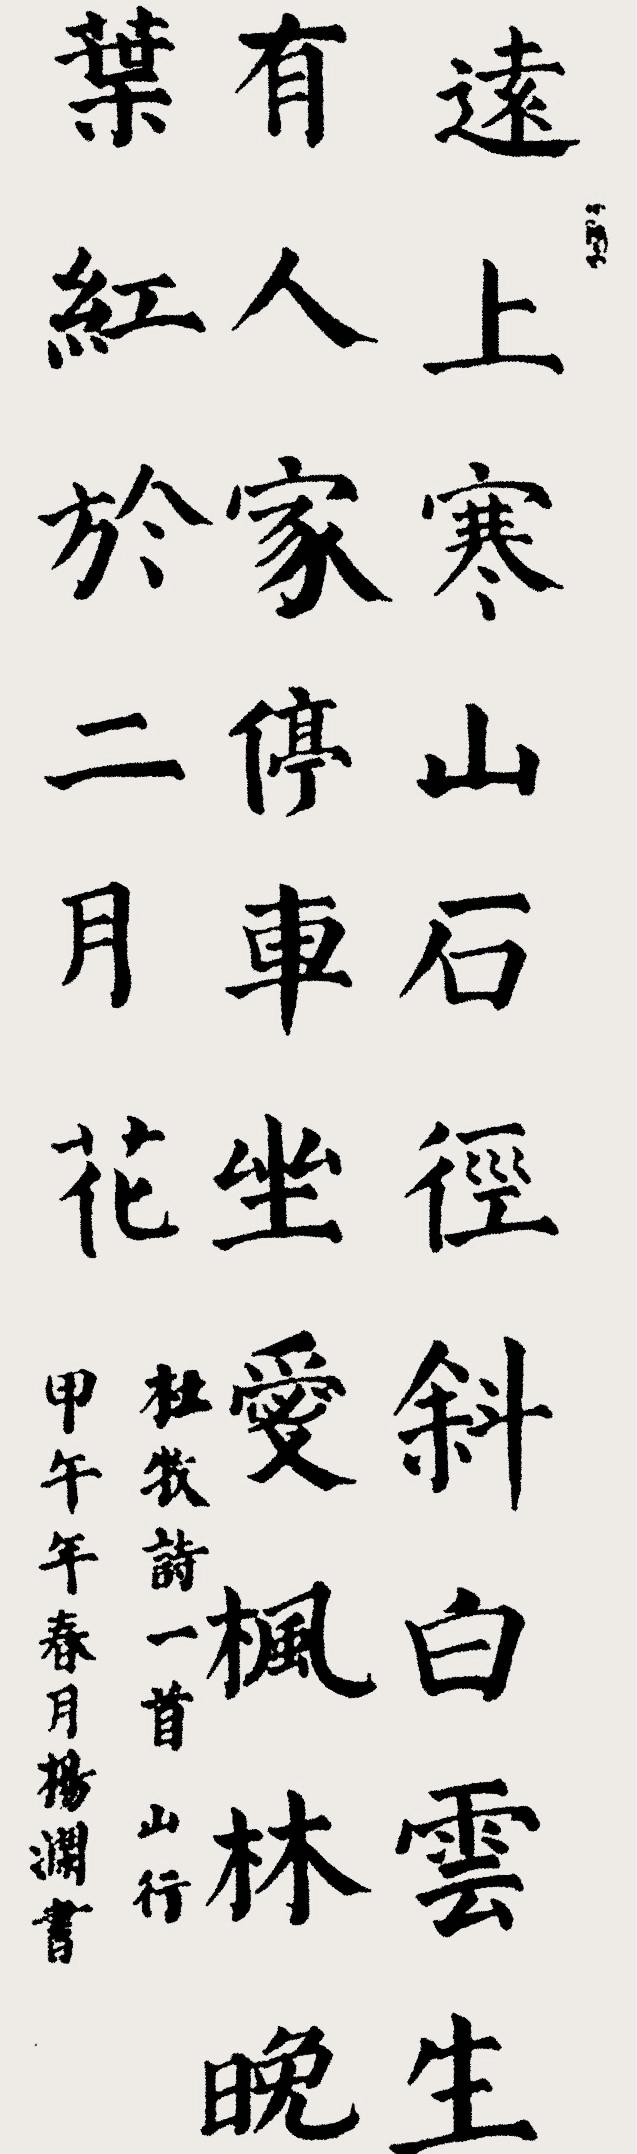 遠上寒山石徑斜白雲生
有人家停車坐愛楓林晚
葉紅於二月花
杜牧詩一首 山行
甲午年春月楊瀾書